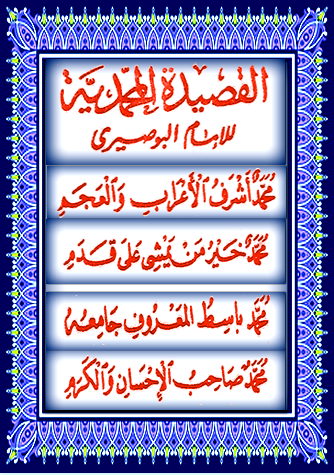 القصيدة المحمدية
للإمام البوصيري
مُحَمَّدٌ أَشْرَفُ الْأَعْرَابِ وَالْعَجَمِ
مُحَمَّدٌ خَيْرُ مَنْ يَمْشِي عَلَى قَدَمِ
مُحَمَّدٌ بَاسِطُ الْمَعْرُوفِ جَامِعُهُ
مُحَمَّدٌ صَاحِبُ الْإِحْسَانِ وَالْكَرَمِ